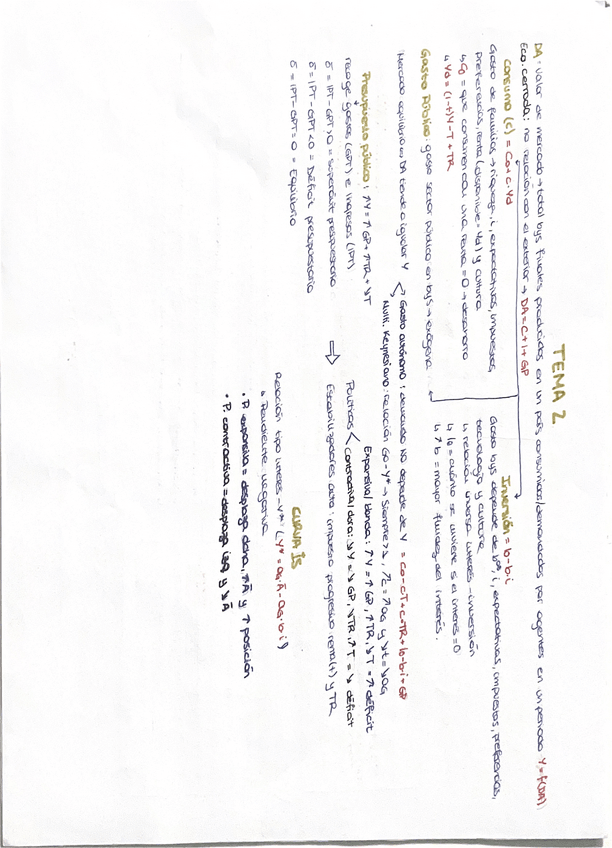 TEMA 2
DA: valor de mercado → total bys finales producidos en un país consumidos/demandados por agentes en un periodo Y=f(DA)
Eco. cerrada: no relación con el exterior → DA = C+I+GP
Consumo (C) = C0 + c·Yd
Gasto de familias → riqueza, i, expectativas, impuestos
preferencias, renta (disponible = Yd) y cultura
↳ C0 = que consumen con una renta = 0 → desahorro
↳ Yd = (1-t)Y - T + TR
Inversión = b - b·i
Gasto bys depende de bº, i, expectativas, impuestos, preferencias,
tecnología y cultura
↳ relación inversa interés - inversión
↳ I0 = cuánto se invierte si el interés = 0
↳ ↑ b = mayor fluidez del interés.
Gasto Público: gasto sector público en bys → exógena
Mercado equilibrio ⇔ DA tiende a igualar Y
Gasto autónomo: demanda no depende de Y = C0 - cT + cTR + I0 - b·i + GP
Multi. Keynesiano: relación GA - Y* → siempre > 1, ↑c = ↑αg y ↓t = ↓αg
Presupuesto público: ↑Y = ↑GP + ↑TR + ↓T
recoge gastos (GPT) e ingresos (IPT)
δ = IPT - GPT > 0 = superávit presupuestario
δ = IPT - GPT < 0 = Déficit presupuestario
δ = IPT - GPT = 0 = Equilibrio
Políticas
Expansiva/blanda: ↑Y = ↑GP, ↑TR, ↓T = ↑ déficit
Contractiva/dura: ↓Y = ↓GP, ↓TR, ↑T = ↓ déficit
Estabilizadores auto: impuesto progresivo renta (t) y TR
CURVA IS
Relación tipo interés - Y* (Y* = αg·Ā - αg·b·i)
↳ Pendiente negativa
• P. expansiva = desplaza dcha, ↑Ā y ↑ posición
• P. contractiva = desplaza izq y ↓Ā